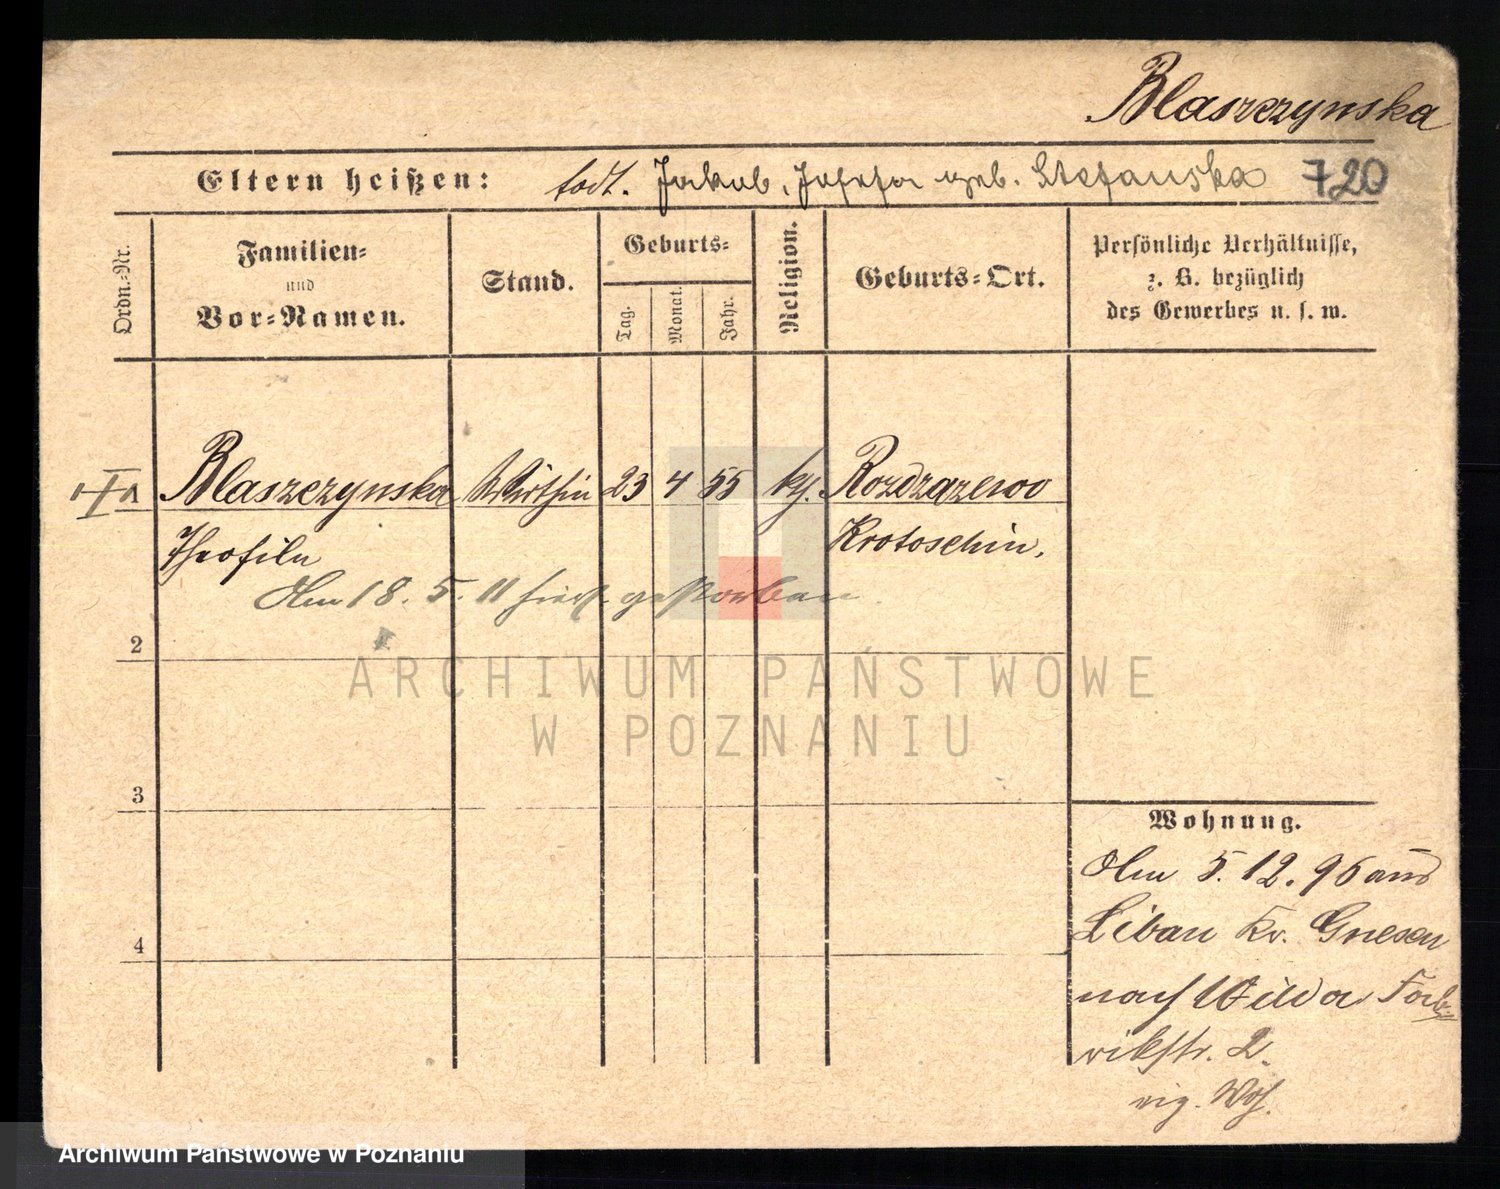 Blaszczynska
Eltern heißen: todt. Jakob, Josefa geb. Stefanska 720
Ordn.=Nr.
Familien=
und
Vor=Namen.
Stand.
Geburts=
Tag.
Monat.
Jahr.
Religion.
Geburts=Ort.
Persönliche Verhältnisse,
z. B. bezüglich
des Gewerbes u. s. w.
1 Blaszczynska Wirthin 23 4 55 kth. Rozdrazewo
Theofila Krotoschin.
Am 18. 5. 11 hier gestorben
2
3
4
Wohnung.
Am 5. 12. 96 aus
Liban Kr. Gnesen
nach Wilda Fab-
rikstr. 2.
eig. Woh.
ARCHIWUM PAŃSTWOWE
W POZNANIU
Archiwum Państwowe w Poznaniu